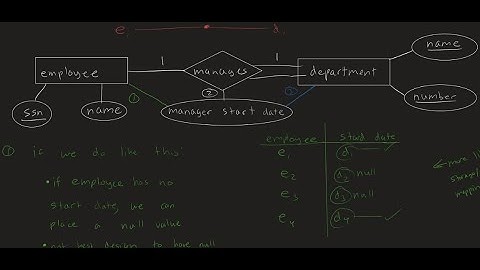 e, d,
1 1
employee manages department name
ssn name ① ② ③ manager start date number
① if we do like this:
• if employee has no
start date, we can
place a null value
• not best design to have null
employee start date
e₁ d₁ ✓
e₂ d₂ null
e₃ d₃ null
e₄ d₄ ✓